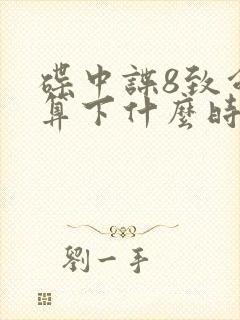 碟中諜8致命清
算下什麼時
劉一手